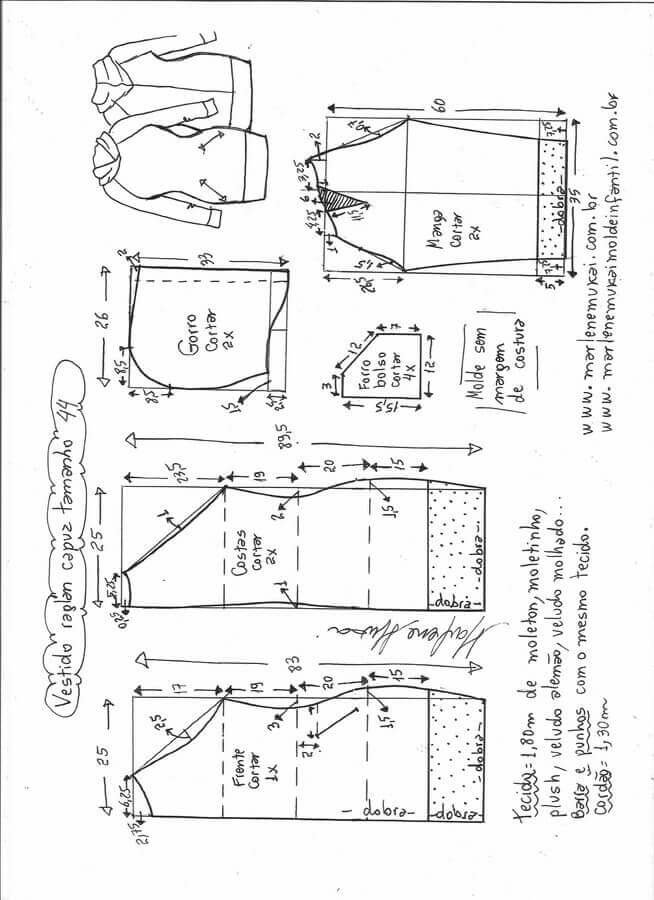 Vestido raglan capuz tamanho 44
60
0,7
2
1,25
3
6
11,5
4,25
1
4,5
26,5
Manga
Cortar
2x
-dobra-
35
5
2
33
26
Gorro
Cortar
2x
8,5
8,5
1,5
7
12
3
Forro
bolso
cortar
4x
12
15,5
Molde sem
margem
de costura
www.marlenemukai.com.br
www.marlenemukaimoldeinfantil.com.br
89,5
23,5
19
20
15
25
1
Costas
Cortar
2x
2
1,5
4,25
0,25
1
-dobra-
-dobra-
Marlene Mukai
83
17
19
20
15
25
2,5
Frente
Cortar
1x
3
2
1,5
6,25
-dobra-
-dobra-
-dobra-
Tecido= 1,80m de moleton, moletinho,
plush, veludo alemão, veludo molhado...
Barra e punhos com o mesmo tecido.
Cordão= 1,30m